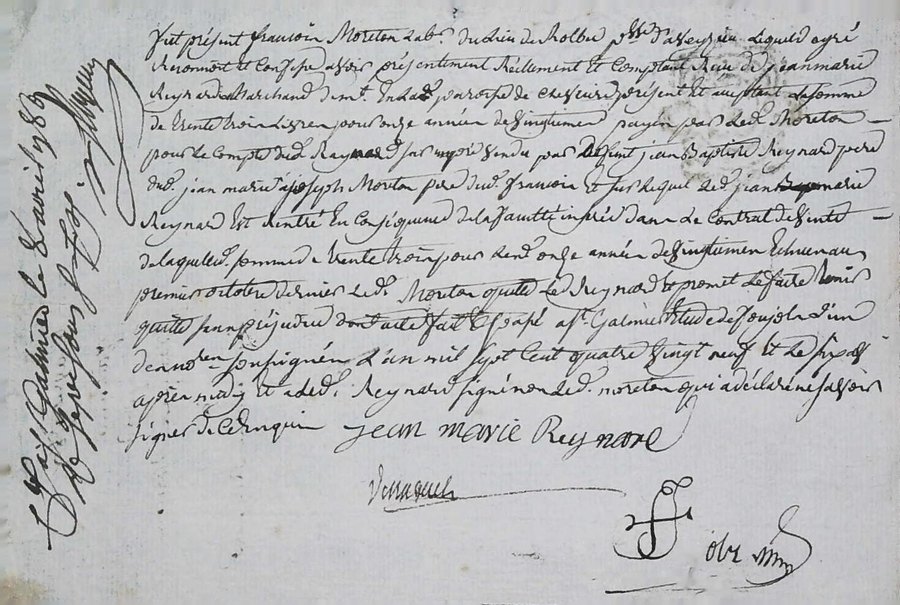 fut présent françois Moreton Lab.r du lieu de
Reconnoit et Confesse avoir présentement Réellement et Comptant Reçu de jean marie
Reynard Marchand paroisse de présent et acceptant La somme
de trente trois Livres pour onze années de vingtiemes payés par Led. Moreton
pour Le Compte dud. Reynard sur un pré vendu par deffunt jean Baptiste Reynard pere
dud. jean marie a joseph Moreton pere dud. françois Et sur Lequel Led. jean marie
Reynard Est Rentré En Conséquence de la faculté inserée dans Le Contrat de vente
de laquelle somme de trente trois pour Lesd. onze années de vingtiemes Echues au
premier octobre dernier Led. Moreton quitte Led. Reynard Et promet Le faire tenir
quitte sans préjudice dont acte fait Et passé a St. Galmier Etude de l'un
de nous no.res soussignés L'an mil sept Cent quatre vingt neuf et Le six avril
après midy Et a Led. Reynard signé non Led. moreton qui a déclaré ne savoir
signer de Ce Enquis
jean marie Reynard
St. Galmier Le avril 1789
Reçu quinze sous